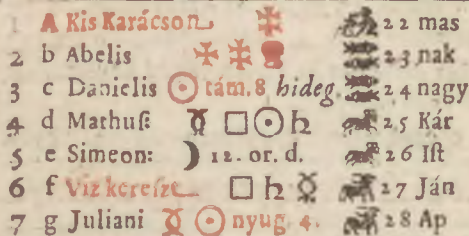 1 A Kis Karácson 22 mas
2 b Abelis 23 nak
3 c Danielis ☉ tám. 8 hideg 24 nagy
4 d Mathuſ: ☿ □ ☉ ♄ 25 Kár
5 e Simeon: ☽ 12. or. d. 26 Iſt
6 f Viz kereſzt □ ♄ ☿ 27 Ján
7 g Juliani ☿ ☉ nyug. 4. 28 Ap